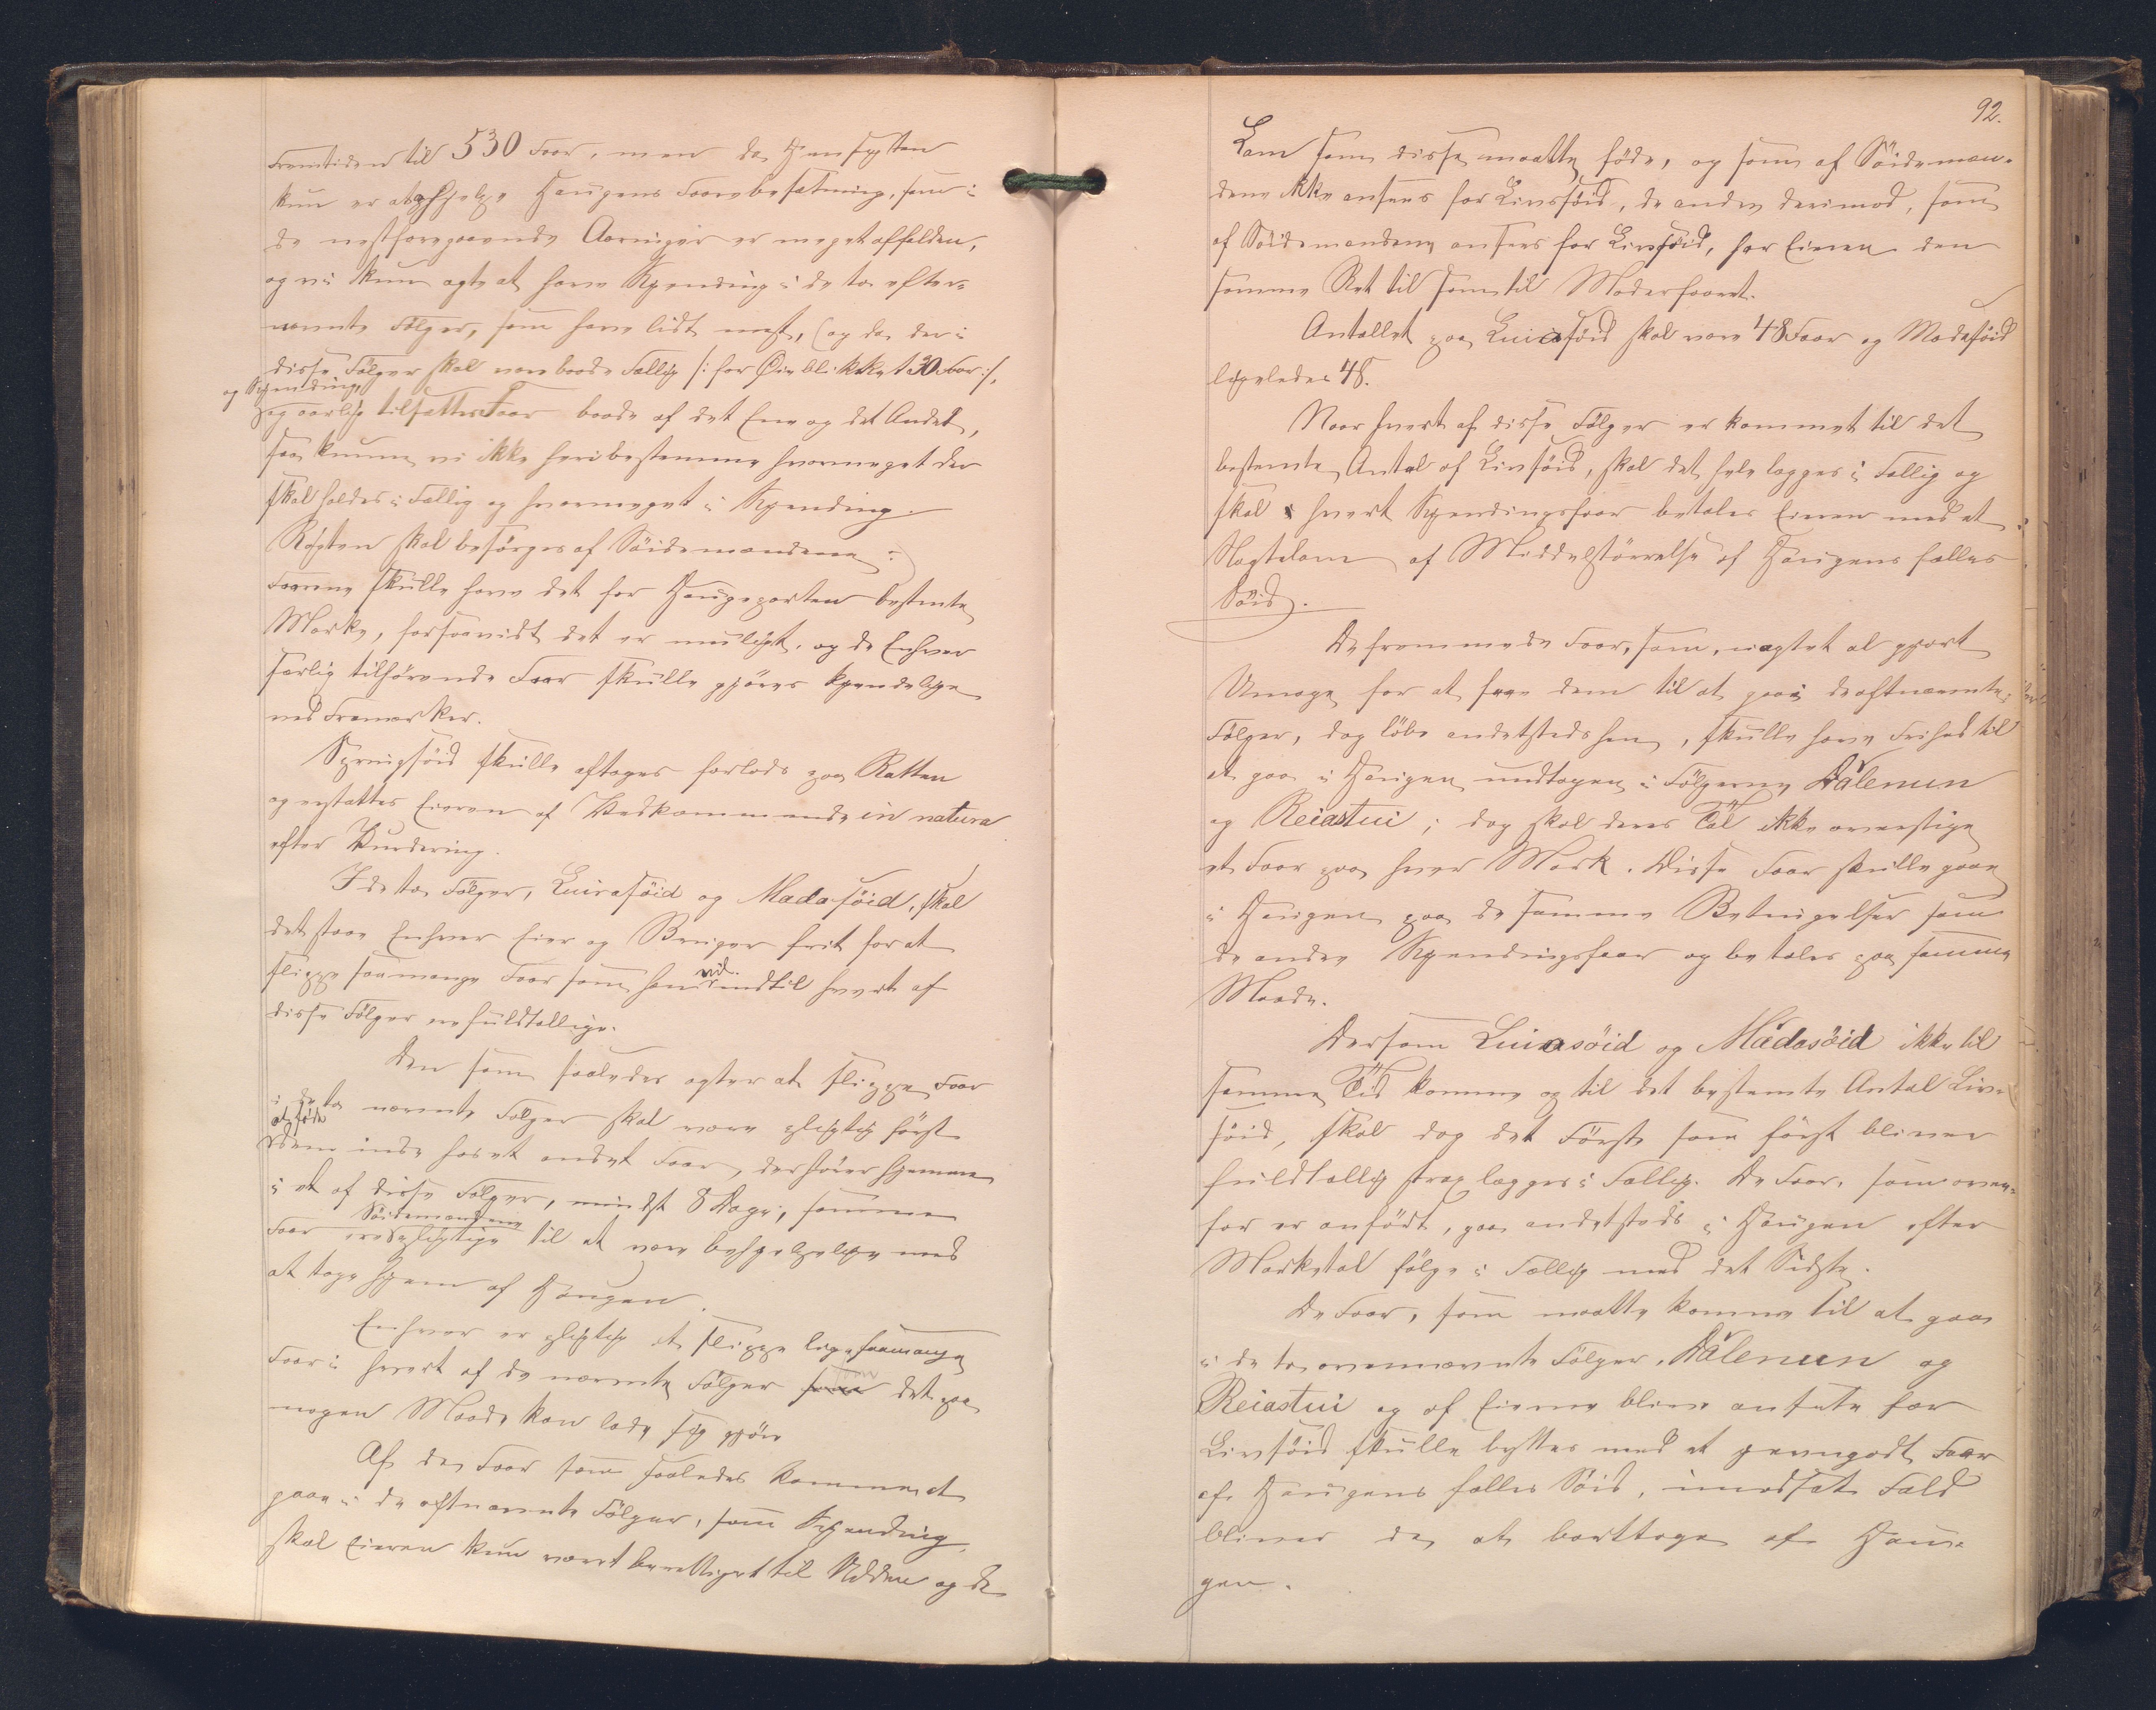 Fremtiden til 530 Faar, men da Hensygten
kun er at afhjelpe Haugens Faarebesætning, som i
de nestforegaaende Aaringer er meget affalden,
og vi kun agte at have Kjending i de to efter-
nævnte Fölger, som have lidt mest, (og da der i
disse Fölger skal være baade Fællig /: for Öieblikket 30 Faar :/,
og Kjending
og aarlig tilsættes Faar baade af det Ene og det Andet,
saa kunne vi ikke heri bestemme hvormeget der
skal holdes i Fællig og hvormeget i Kjending.
Rögten skal besörges af Söidemændene;
Faarene skulle have det for Haugeparten bestemte
Mærke, forsaavidt det er muligt, og de Enhver
særlig tilhörende Faar skulle gjöres kjendelige
ved Fremærker.
Springsöid skulle aftages forlods paa Rætten
og erstattes Eieren af Vedkommende in natura
efter Vurdering.
I de to Fölger, Luirasöid og Madasöid, skal
det staae Enhver Eier og Bruger frit for at
slippe saamange Faar som han vil indtil hvert af
disse Fölger er fuldtallige.
Den som saaledes agter at slippe Faar
i de to nævnte Fölger skal være pligtig först
at föde
dem inde hos et andet Faar, der hörer hjemme
i et af disse Fölger, mindst 8 Dage, samme
Söidemændene
Faar ere pligtige til at være behjelpelige med
at tage hjem af Haugen.
Enhver er pligtig at slippe lige saamange
Faar i hvert af de nævnte Fölger som det paa
nogen Maade kan lade sig gjöre
Af de Faar som saaledes komme at
gaae i de oftnævnte Fölger, som Kjending,
skal Eieren kun være berettiget til Ulden og de
92.
Lam som disse maatte föde, og som af Söidemæn-
dene ikke ansees for Livssöid, de andre derimod, som
af Söidemændene ansees for Livsöid, har Eieren den
samme Ret til som til Moderfaaret.
Antallet paa Luirasöid skal være 48 Faar og Madasöid
ligeledes 48.
Naar hvert af disse Fölger er kommet til det
bestemte Antal af Livsöid, skal det hele lægges i Fællig og
skal hvert Kjendingsfaar betales Eieren med et
Slagtelam af Middelstörrelse af Haugens fælles
Söid.
De fremmede Faar, som, uagtet al gjort
Umage for at faae dem til at gaa i de oftnævnte
Fölger, dog löbe andetsteds hen, skulle have Frihed til
at gaa i Haugen undtagen i Fölgerne Dålenun
og Reiastui; dog skal deres Tal ikke overstige
et Faar paa hver Mark. Disse Faar skulle gaae
i Haugen paa de samme Betingelser som
de andre Kjendingsfaar og betales paa samme
Maade.
Dersom Luirasöid og Mådasöid ikke til
samme Tid komme op til det bestemte Antal Liv-
söid, skal dog det Förste som först bliver
fuldtallig strax lægges i Fællig. De Faar, som oven-
for er anfört, gaa andetsteds i Haugen efter
Marketal fölge i Fællig med det Sidste.
De Faar, som maatte komme til at gaa
i de to ovennævnte Fölger, Dålenun og
Reiastui og af Eierne blive ansete for
Livsöid skulle byttes med et jevngodt Faar
af Haugens fælles Söid, i modsat Fald
bliver de at borttage af Hau-
gen.